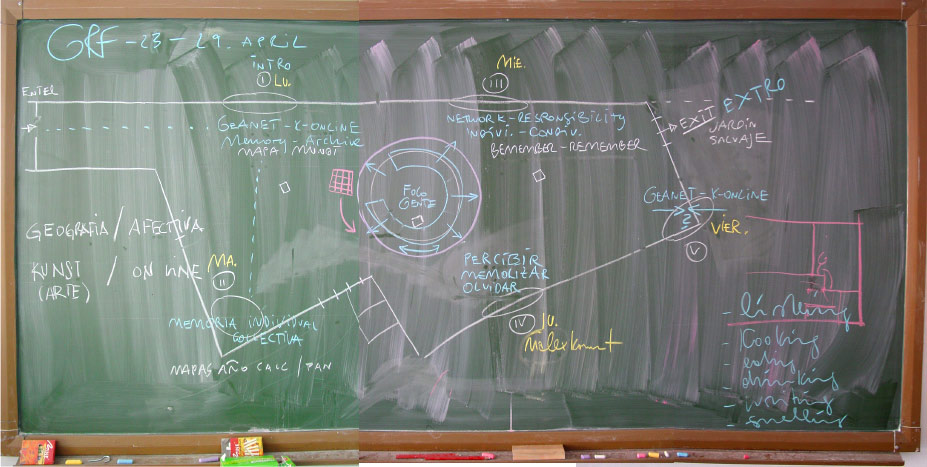 GRF - 23 - 29. APRIL
INTRO
I LU.
MIE.
III
ENTER
EXTRO
EXIT
JARDIN
SALVAJE
GEANET-K-ONLINE
Memory-Archive
MAPA / MUNDI
NETWORK - RESPONSIBILITY
INDIVI. - CONDIV.
BEMEMBER-REMEMBER
FOCO
GENTE
GEANET-K-ONLINE
VIER.
V
GEOGRAFIA / AFECTIVA
KUNST / ON LINE
(ARTE)
MA.
II
PERCIBIR
MEMORIZAR
OLVIDAR
MEMORIA INDIVIDUAL
COLLECTIVA
MAPAS AÑO CALC / PAN
IV
JU.
- listening
- Kooking
- eating
- drinking
- writing
- smelling